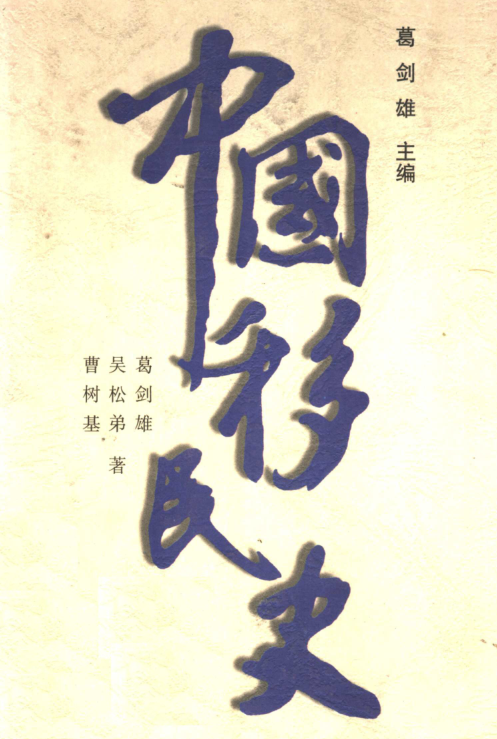 葛剑雄 主编
中國移民史
葛剑雄
吴松弟 著
曹树基